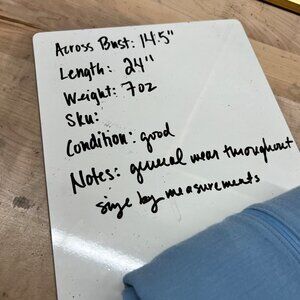 Across Bust: 14.5"
Length: 24"
Weight: 7oz
Sku:
Condition: good
Notes: general wear throughout
size by measurements